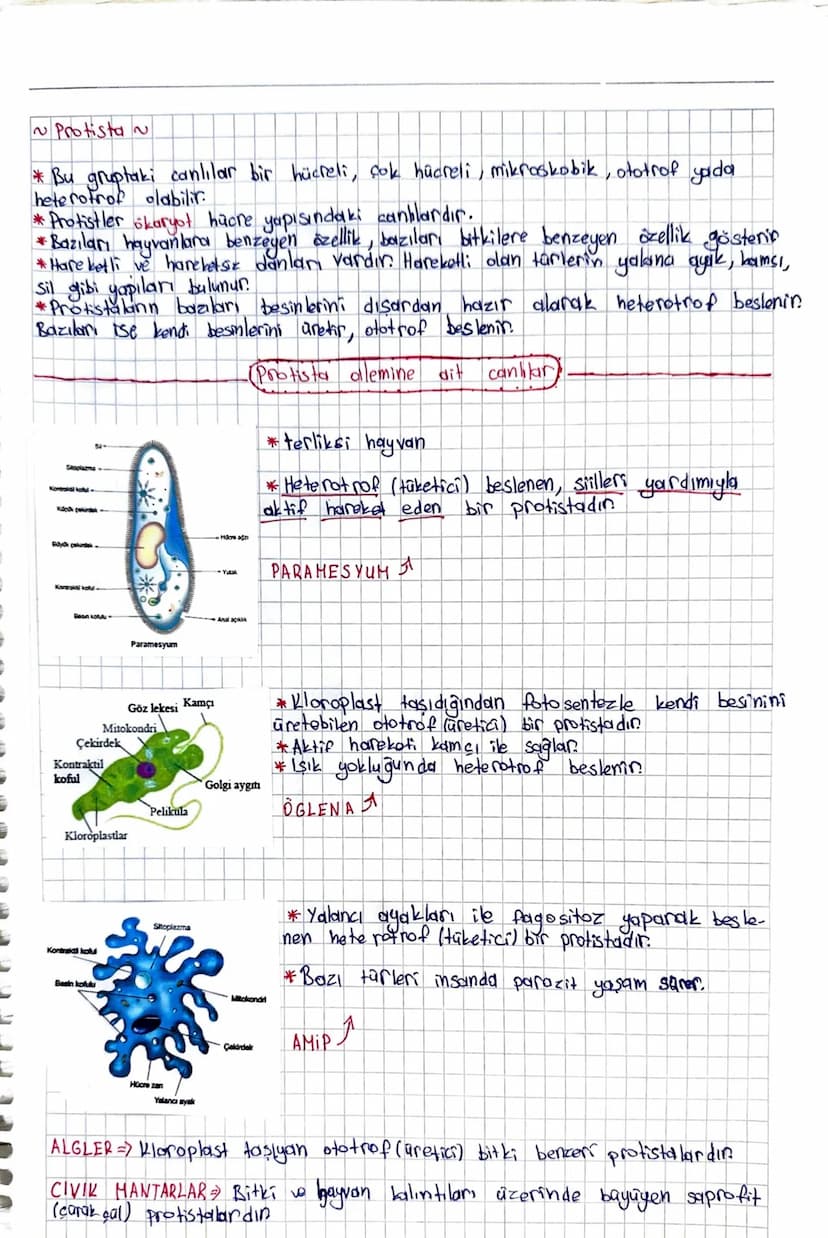 ~ Protista ~
* Bu gruptaki canlılar bir hücreli, çok hücreli, mikroskobik, ototrof yada
heterotrof olabilir.
* Protistler ökaryot hücre yapısındaki canlılardır.
* Bazıları hayvanlara benzeyen özellik, bazıları bitkilere benzeyen özellik gösterir
* Hareketli ve hareketsiz olanları vardır. Hareketli olan türlerin yalancı ayak, kamçı,
sil gibi yapıları bulunur.
* Protistaların bazıları besinlerini dışardan hazır alarak heterotrof beslenir.
Bazıları ise kendi besinlerini üretir, ototrof beslenir.
Protista alemine ait canlılar
* terliksi hayvan
* Heterotrof (tüketici) beslenen, silleri yardımıyla
aktif hareket eden bir protistadır.
PARAMESYUM
Sil
Sitoplazma
Kontraktil koful
Küçük çekirdek
Büyük çekirdek
Kontraktil koful
Besin kofulu
Hücre ağzı
Yutak
Anal açıklık
Paramesyum
* Kloroplast taşıdığından fotosentezle kendi besinini
üretebilen ototrof (üretici) bir protistadır.
* Aktif hareketi kamçı ile sağlar.
* Işık yokluğunda heterotrof beslenir.
ÖGLENA
Göz lekesi
Kamçı
Mitokondri
Çekirdek
Kontraktil
koful
Golgi aygıtı
Pelikula
Kloroplastlar
* Yalancı ayakları ile fagositoz yaparak besle-
nen heterotrof (tüketici) bir protistadır.
* Bazı türleri insanda parazit yaşam sürer.
AMİP
Sitoplazma
Kontraktil koful
Besin kofulu
Mitokondri
Çekirdek
Hücre zarı
Yalancı ayak
ALGLER => Kloroplast taşıyan ototrof (üretici) bitki benzeri protistalardır.
CIVIK MANTARLAR => Bitki ve hayvan kalıntıları üzerinde büyüyen saprofit
(çürükçül) protistalardır